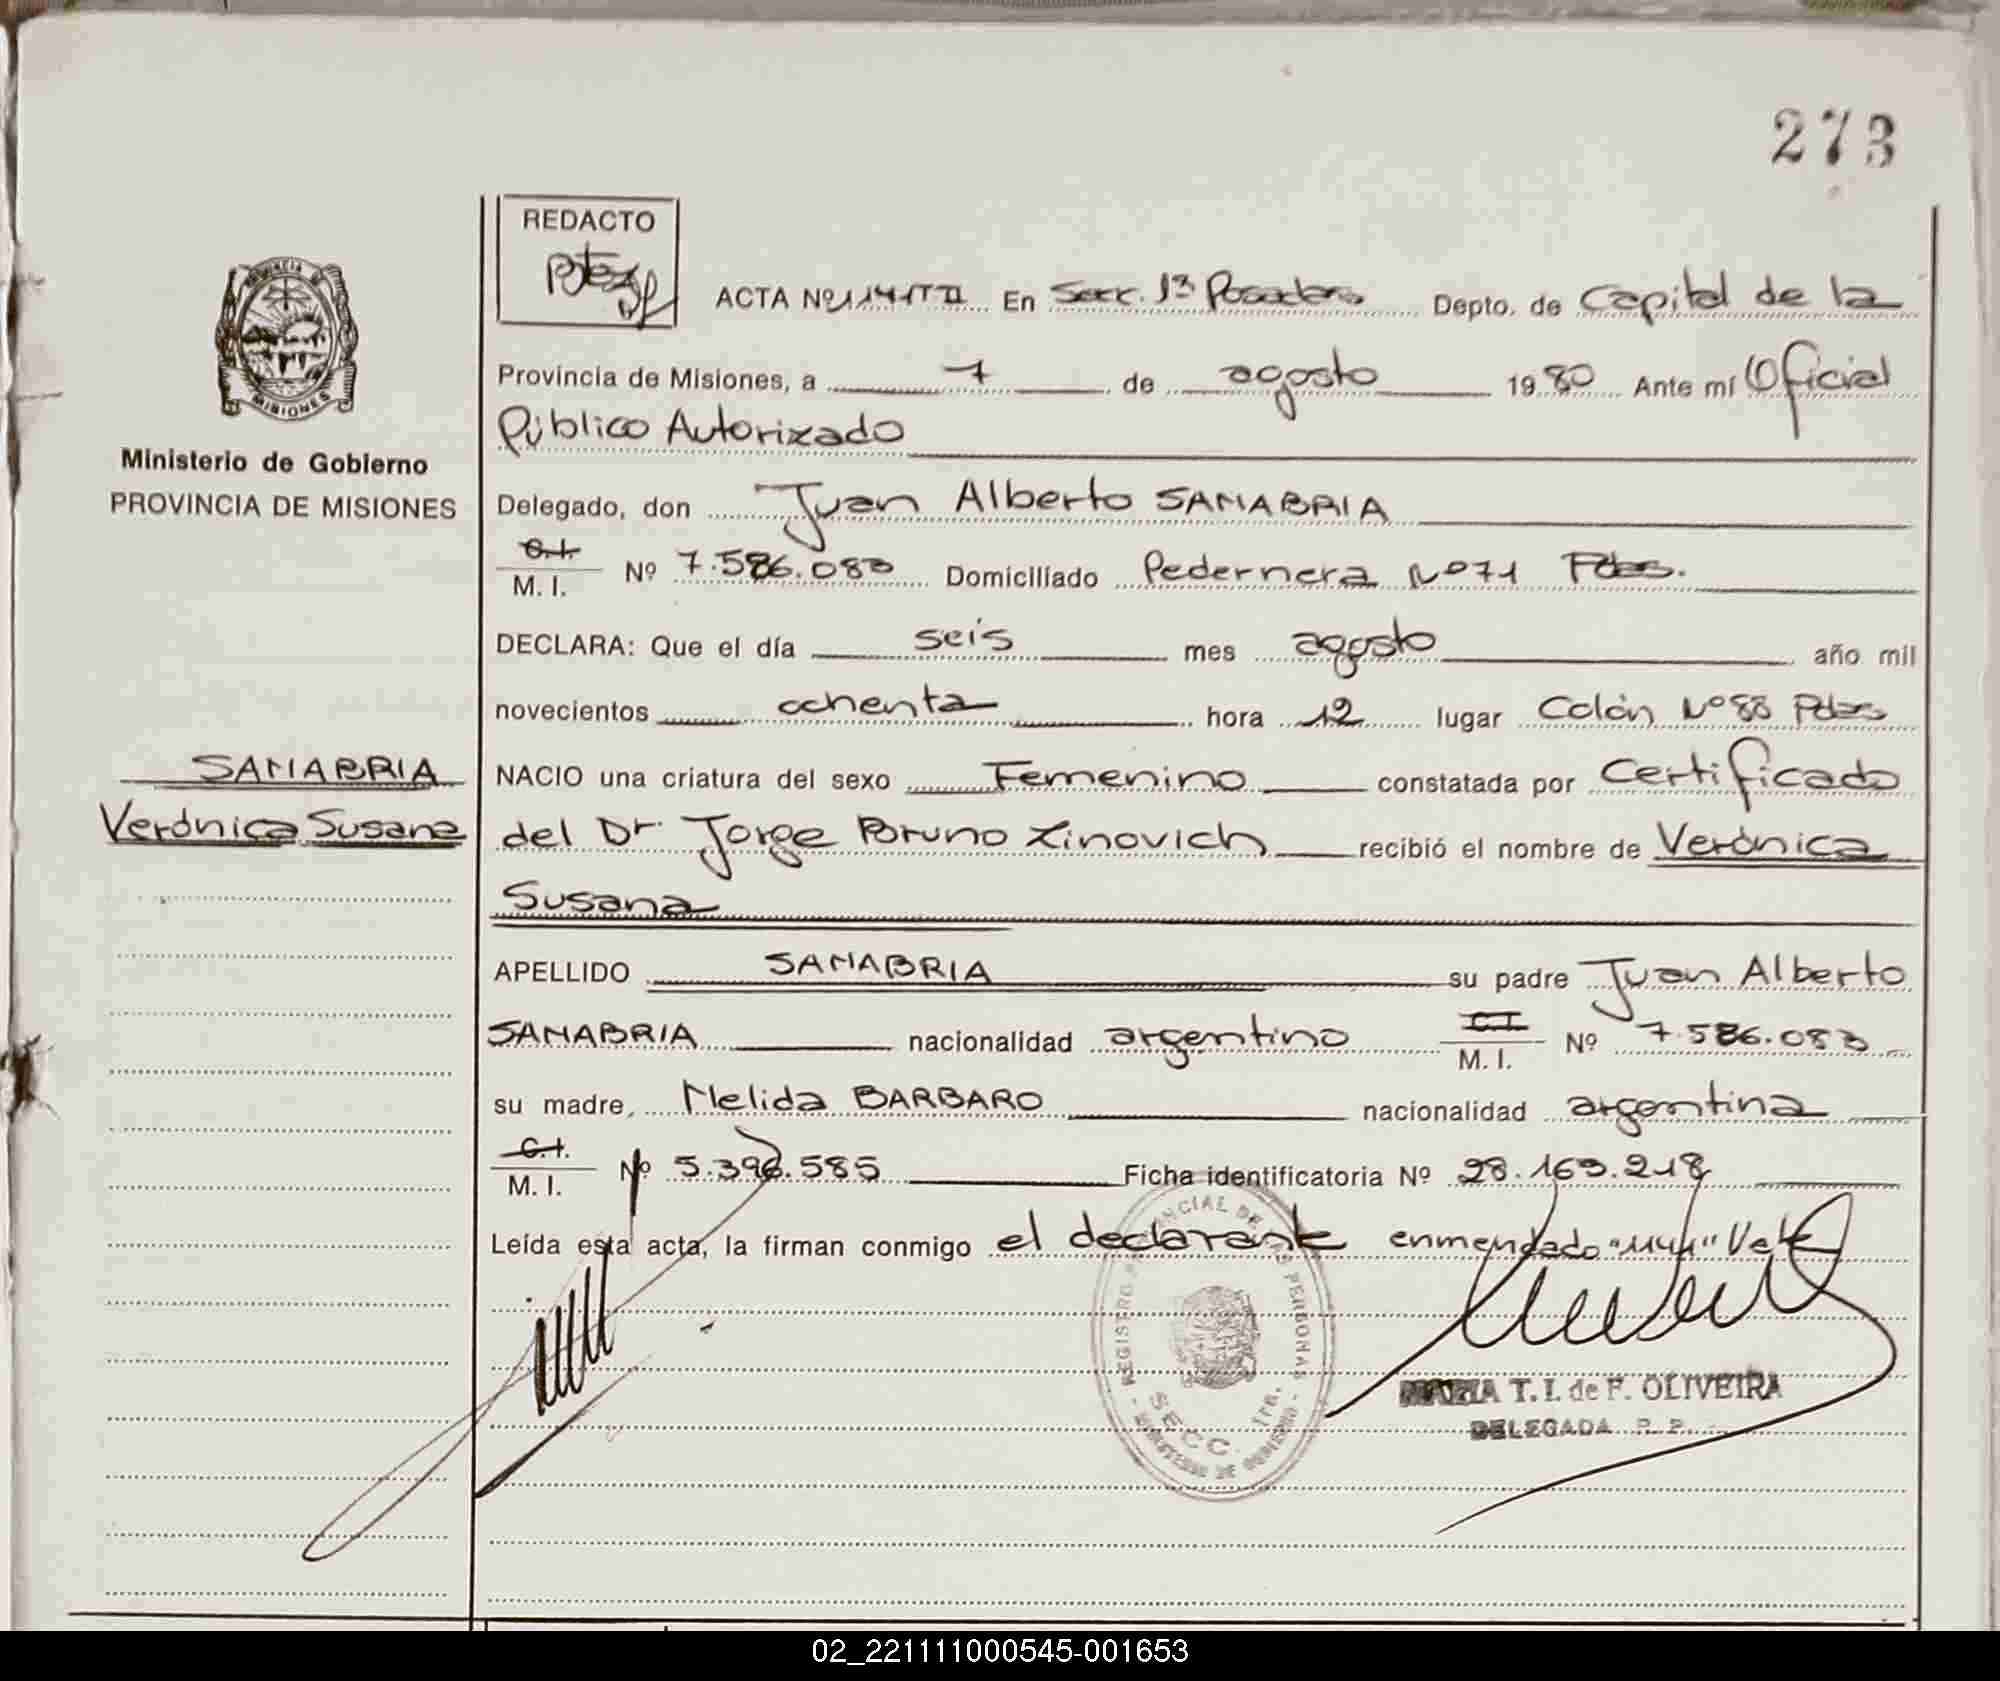 273
REDACTO
ACTA Nº 1141 T II En Secc. 1ª Posadas Depto. de Capital de la
PROVINCIA DE
MISIONES
Provincia de Misiones, a 7 de agosto 1980 Ante mí Oficial
Público Autorizado
Ministerio de Gobierno
PROVINCIA DE MISIONES
Delegado, don Juan Alberto SANABRIA
C.I.
M. I. Nº 7.586.083 Domiciliado Pedernera Nº 71 Pdas.
DECLARA: Que el día seis mes agosto año mil
novecientos ochenta hora 12 lugar Colón Nº 88 Pdas
SANABRIA
Verónica Susana
NACIO una criatura del sexo Femenino constatada por Certificado
del Dr. Jorge Bruno Zinovich recibió el nombre de Verónica
Susana
APELLIDO SANABRIA su padre Juan Alberto
SANABRIA nacionalidad argentino C.I. M. I. Nº 7.586.083
su madre, Nelida BARBARO nacionalidad argentina
C.I.
M. I. Nº 5.396.585 Ficha identificatoria Nº 28.169.218
Leída esta acta, la firman conmigo el declarante enmendado Vale
REGISTRO PROVINCIAL DE LAS PERSONAS
SECC. 1ra.
MINISTERIO DE GOBIERNO
MARIA T. I. de F. OLIVEIRA
DELEGADA R. P.
02_221111000545-001653